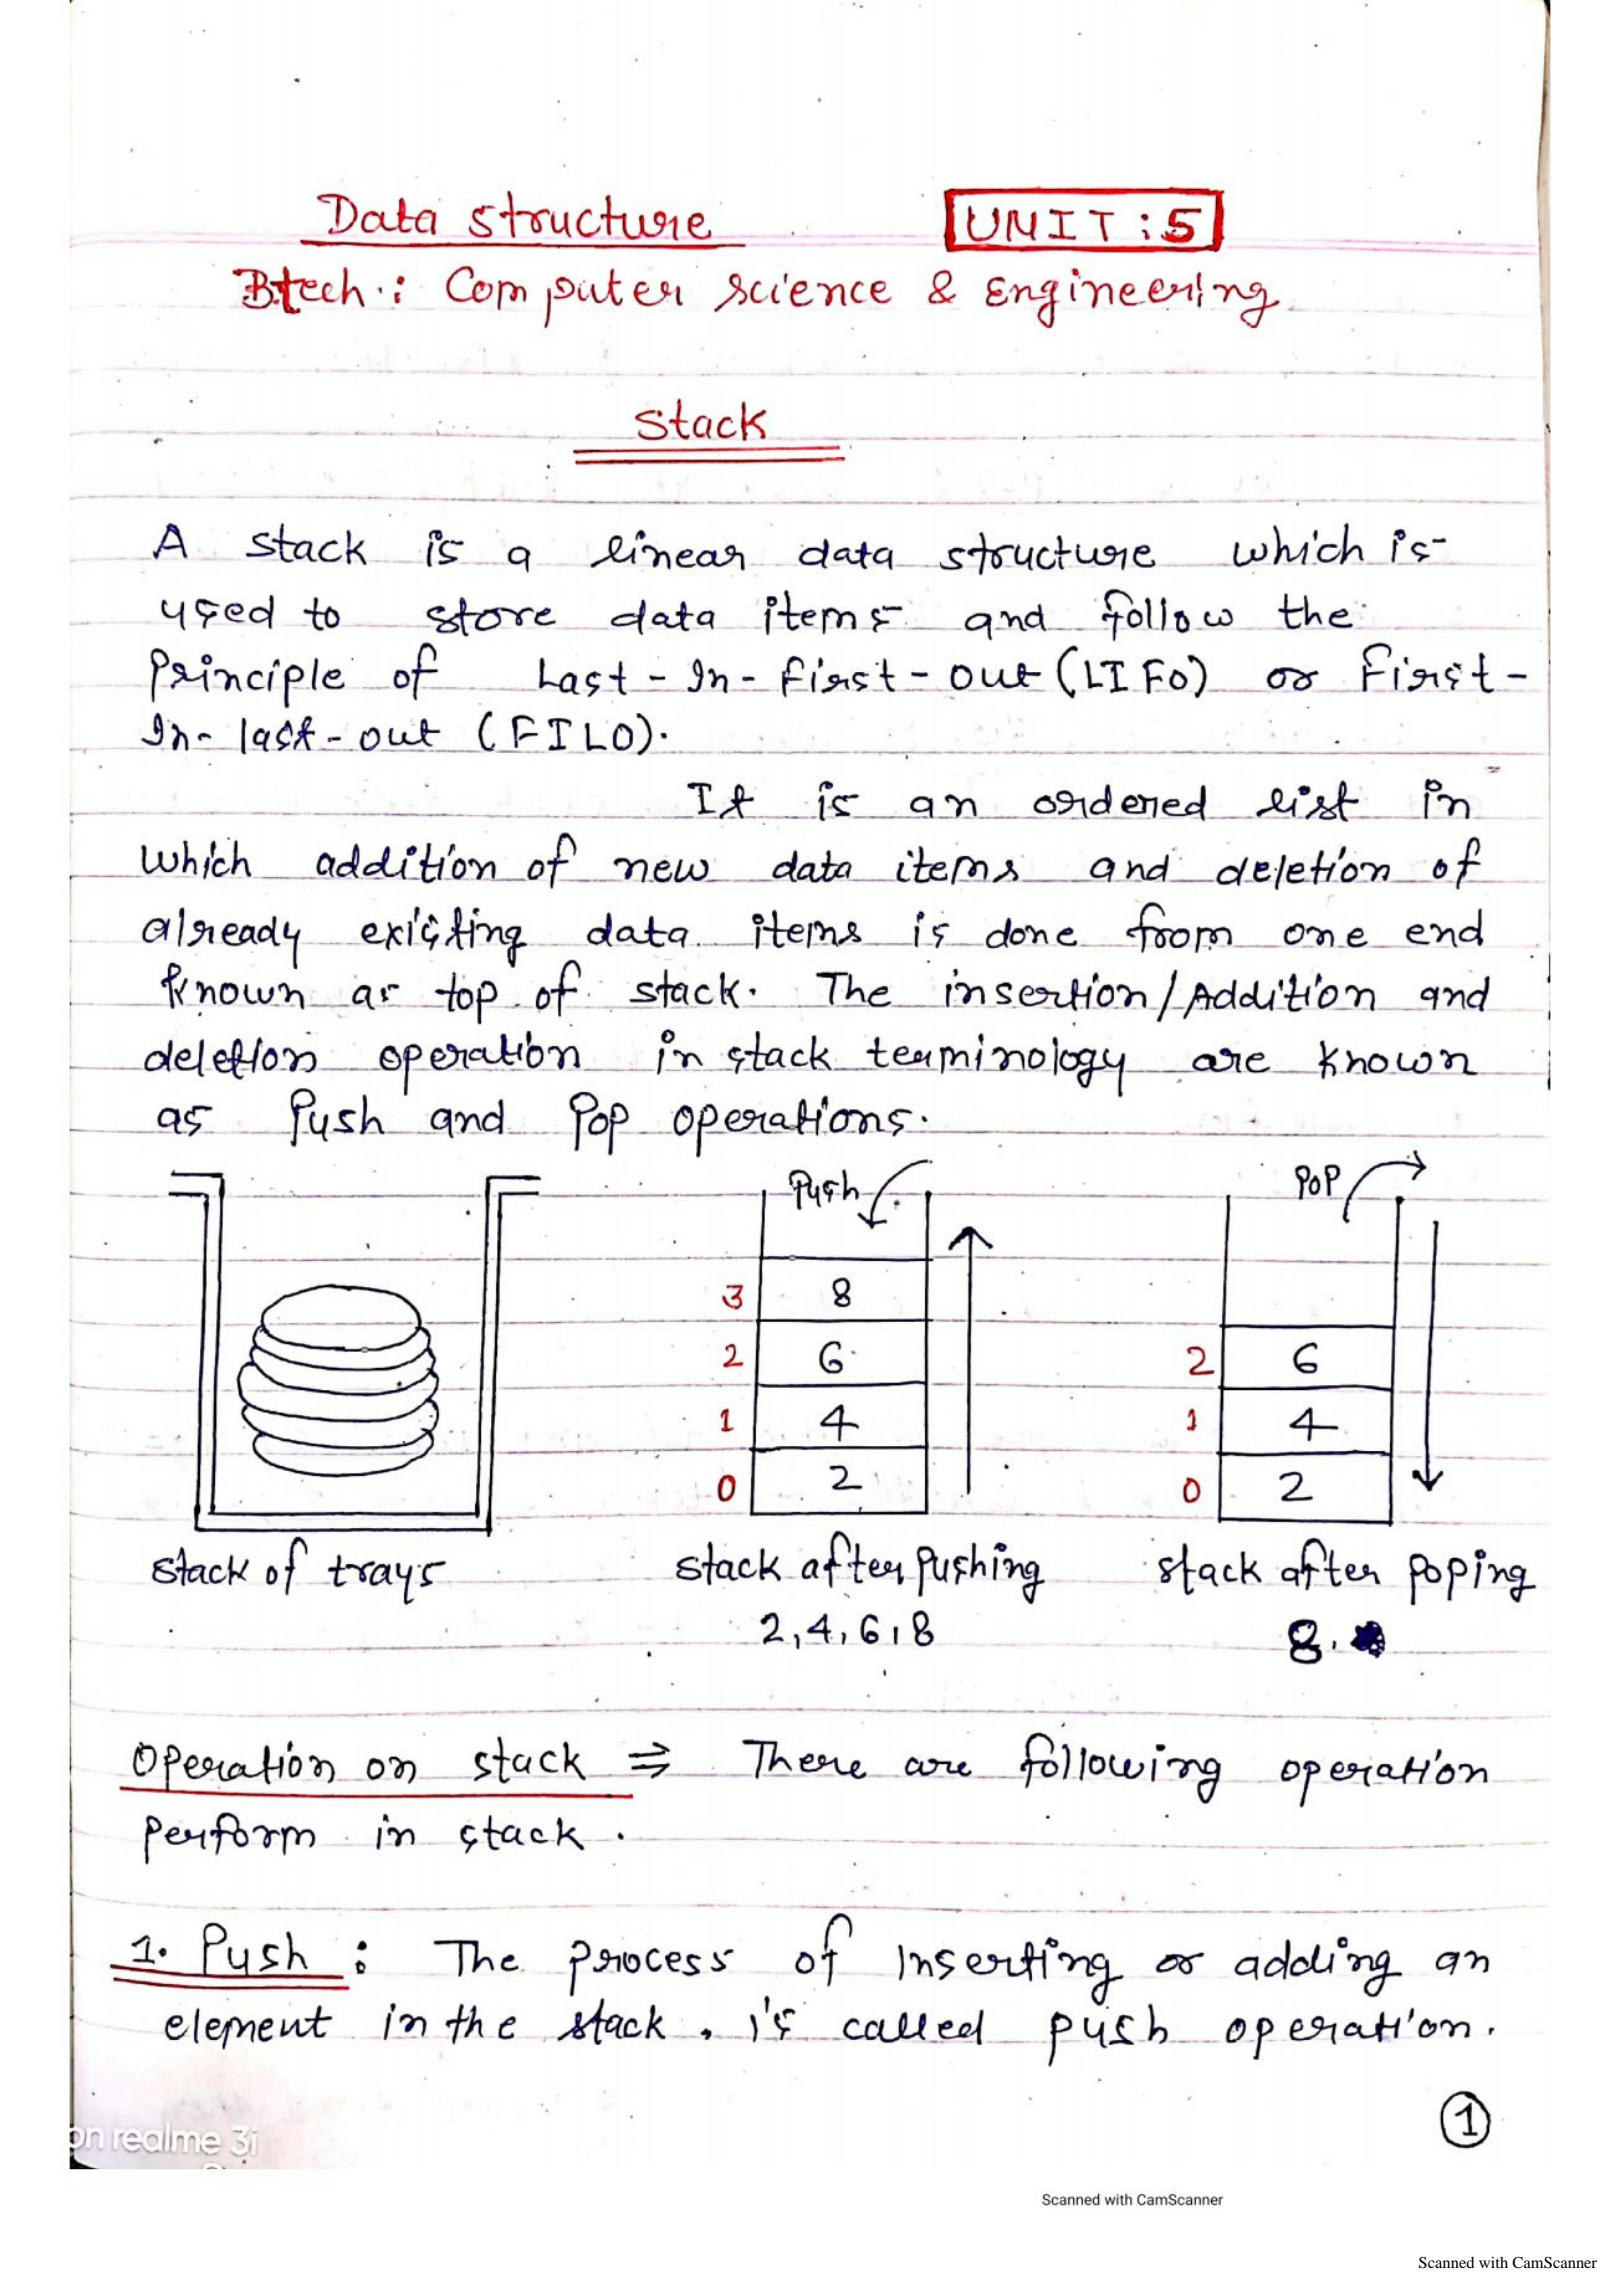 Data structure UNIT : 5
Btech : Computer science & Engineering
Stack
A stack is a linear data structure which is
used to store data items and follow the
Principle of Last-In-First-out (LIFO) or First-
In-last-out (FILO).
It is an ordered list in
which addition of new data items and deletion of
already existing data items is done from one end
known as top of stack. The insertion/Addition and
deletion operation in stack terminology are known
as Push and Pop operations.
Push POP
3 8
2 6 2 6
1 4 1 4
0 2 0 2
stack of trays stack after pushing stack after poping
2,4,6,8 8.
Operation on stack ⇒ There are following operation
perform in stack.
1. Push : The process of Inserting or adding an
element in the stack . is called push operation.
1
on realme 3i
Scanned with CamScanner
Scanned with CamScanner